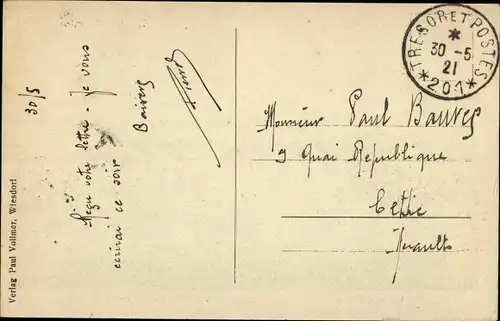 30/5
Reçu votre lettre - Je vous
écrirai ce soir
Baisers
TRESOR ET POSTES
*
30 - 5
21
* 201 *
Monsieur Paul Bauves
9 Quai République
Cette
Hérault
Verlag Paul Vollmer, Wiesdorf